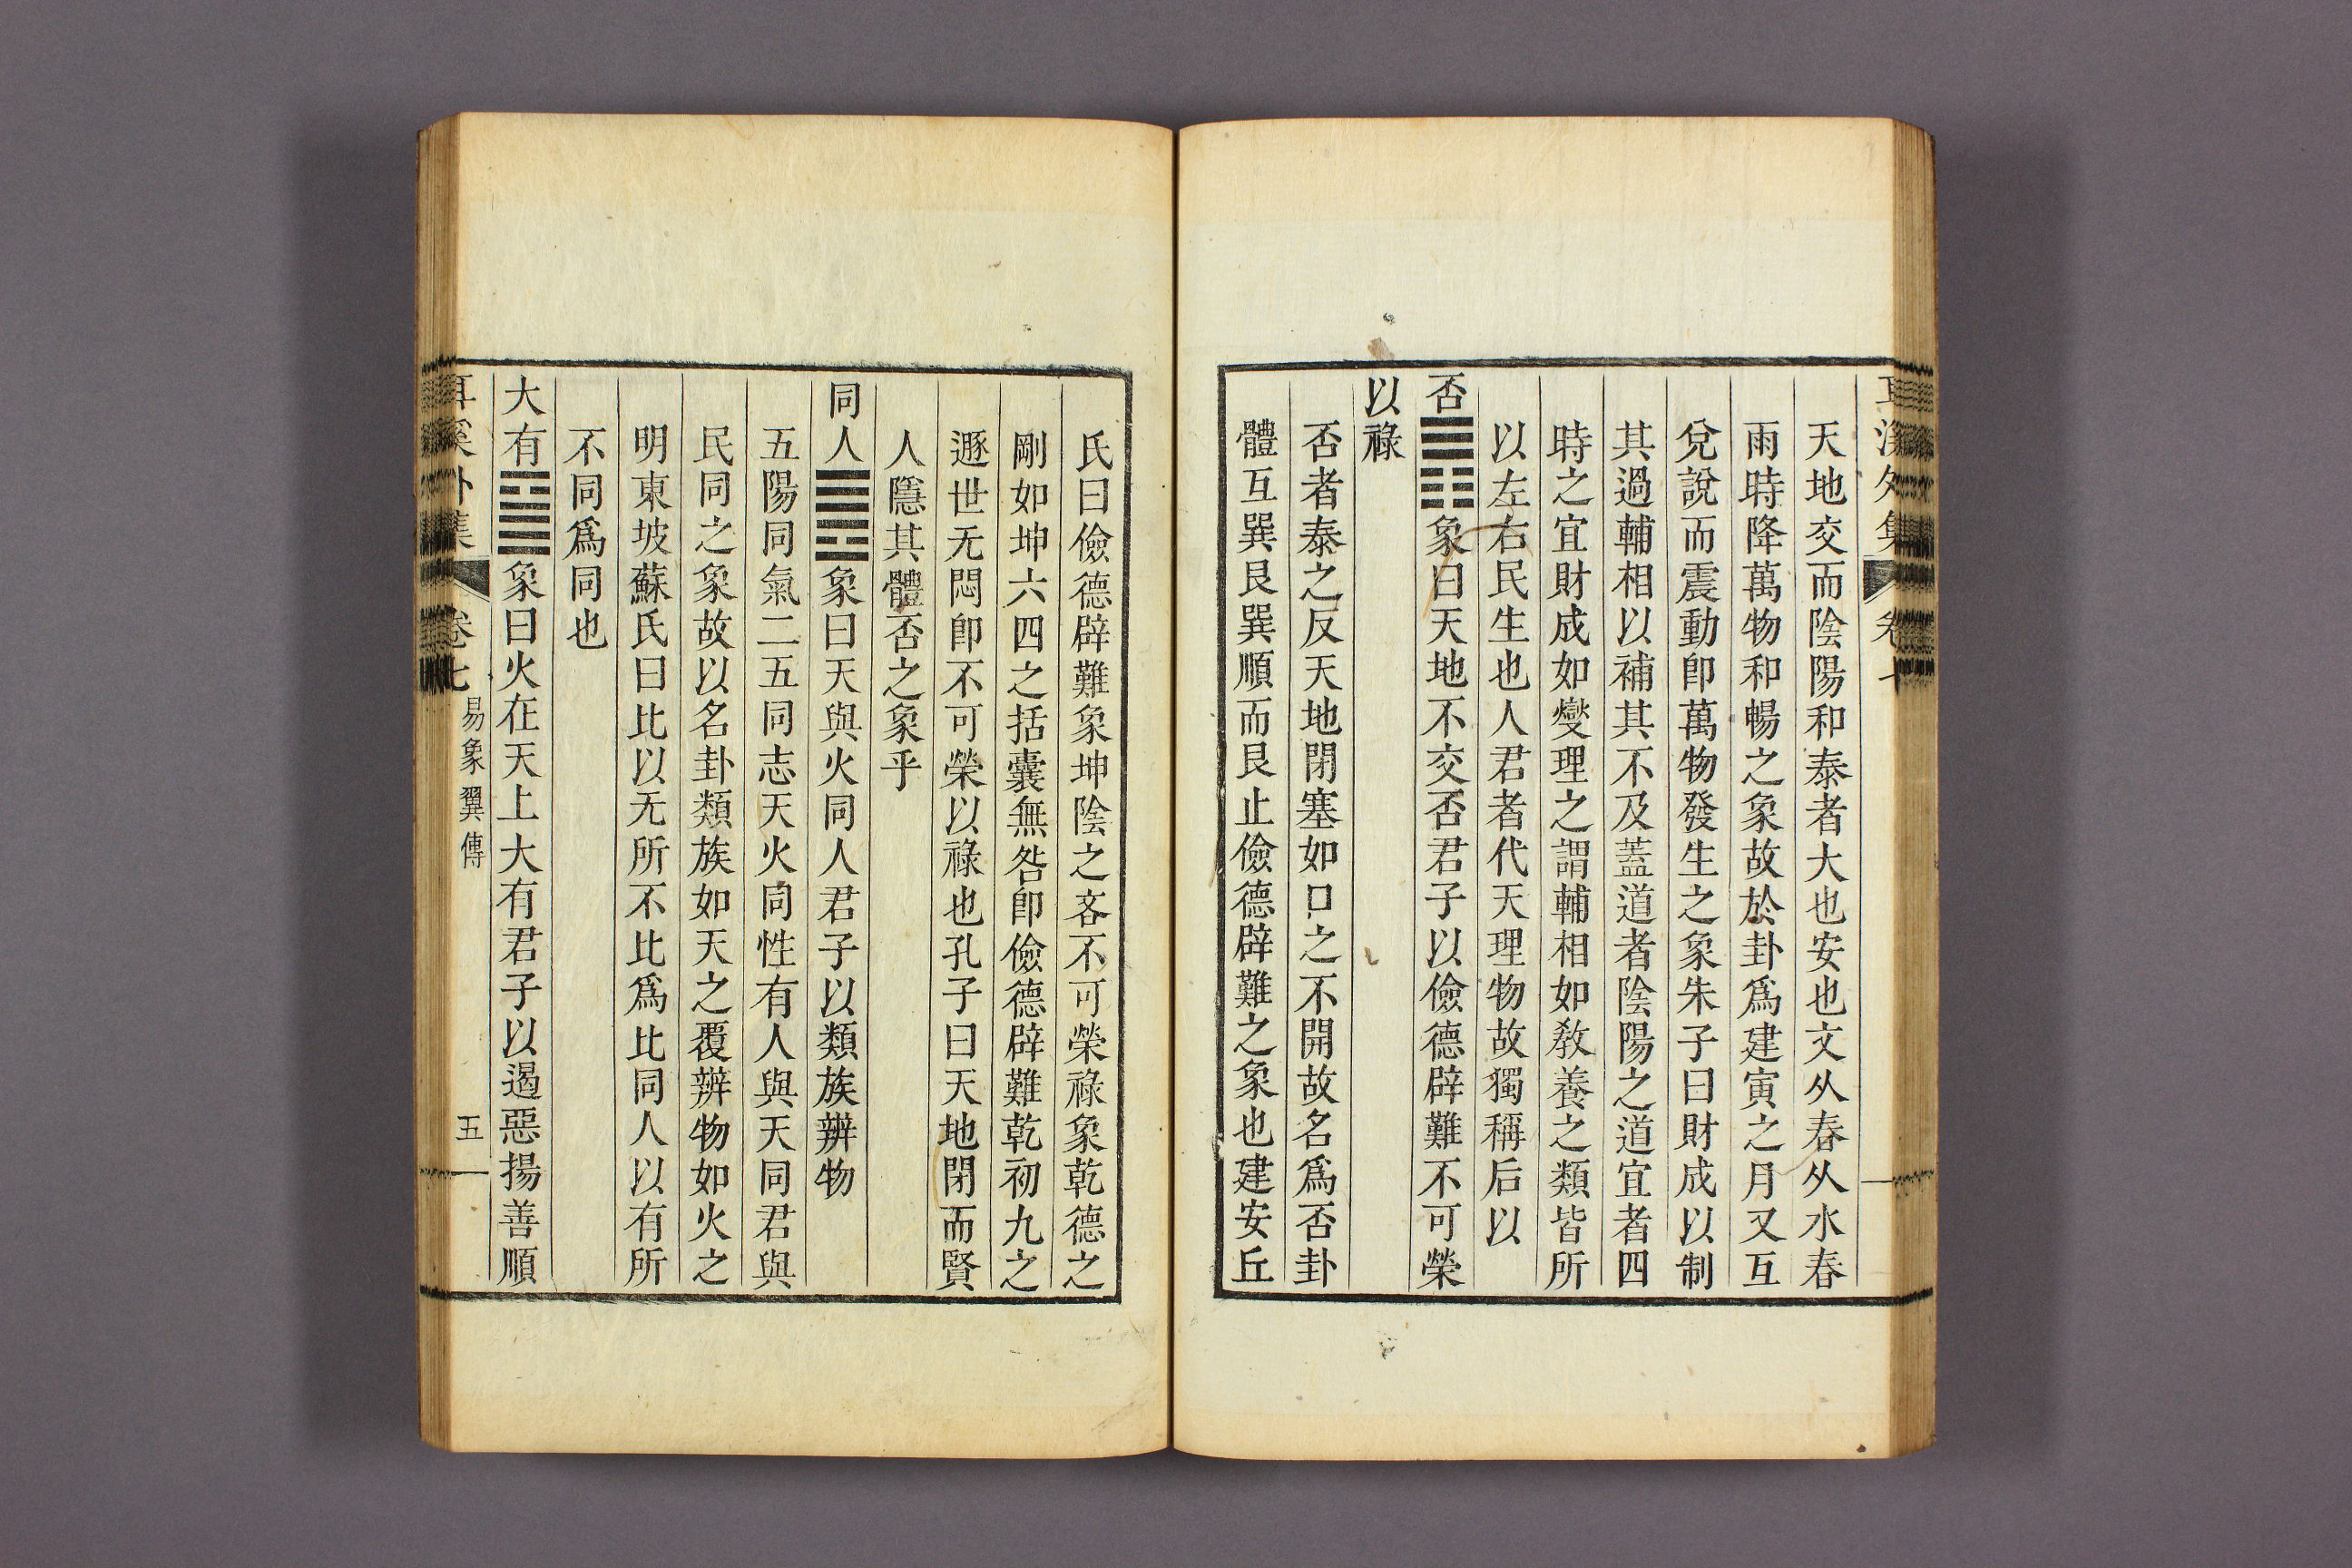 耳溪外集 卷七
天地交而陰陽和泰者大也安也文从春从水春
雨時降萬物和暢之象故於卦爲建寅之月又互
兌說而震動卽萬物發生之象朱子曰財成以制
其過輔相以補其不及蓋道者陰陽之道宜者四
時之宜財成如燮理之謂輔相如敎養之類皆所
以左右民生也人君者代天理物故獨稱后以
否䷋象曰天地不交否君子以儉德辟難不可榮
以祿
否者泰之反天地閉塞如口之不開故名爲否卦
體互巽艮巽順而艮止儉德辟難之象也建安丘
氏曰儉德辟難象坤陰之吝不可榮祿象乾德之
剛如坤六四之括囊無咎卽儉德辟難乾初九之
遯世无悶卽不可榮以祿也孔子曰天地閉而賢
人隱其體否之象乎
同人䷌象曰天與火同人君子以類族辨物
五陽同氣二五同志天火同性有人與天同君與
民同之象故以名卦類族如天之覆辨物如火之
明東坡蘇氏曰比以无所不比爲比同人以有所
不同爲同也
大有䷍象曰火在天上大有君子以遏惡揚善順
耳溪外集 卷七 易象翼傳 五